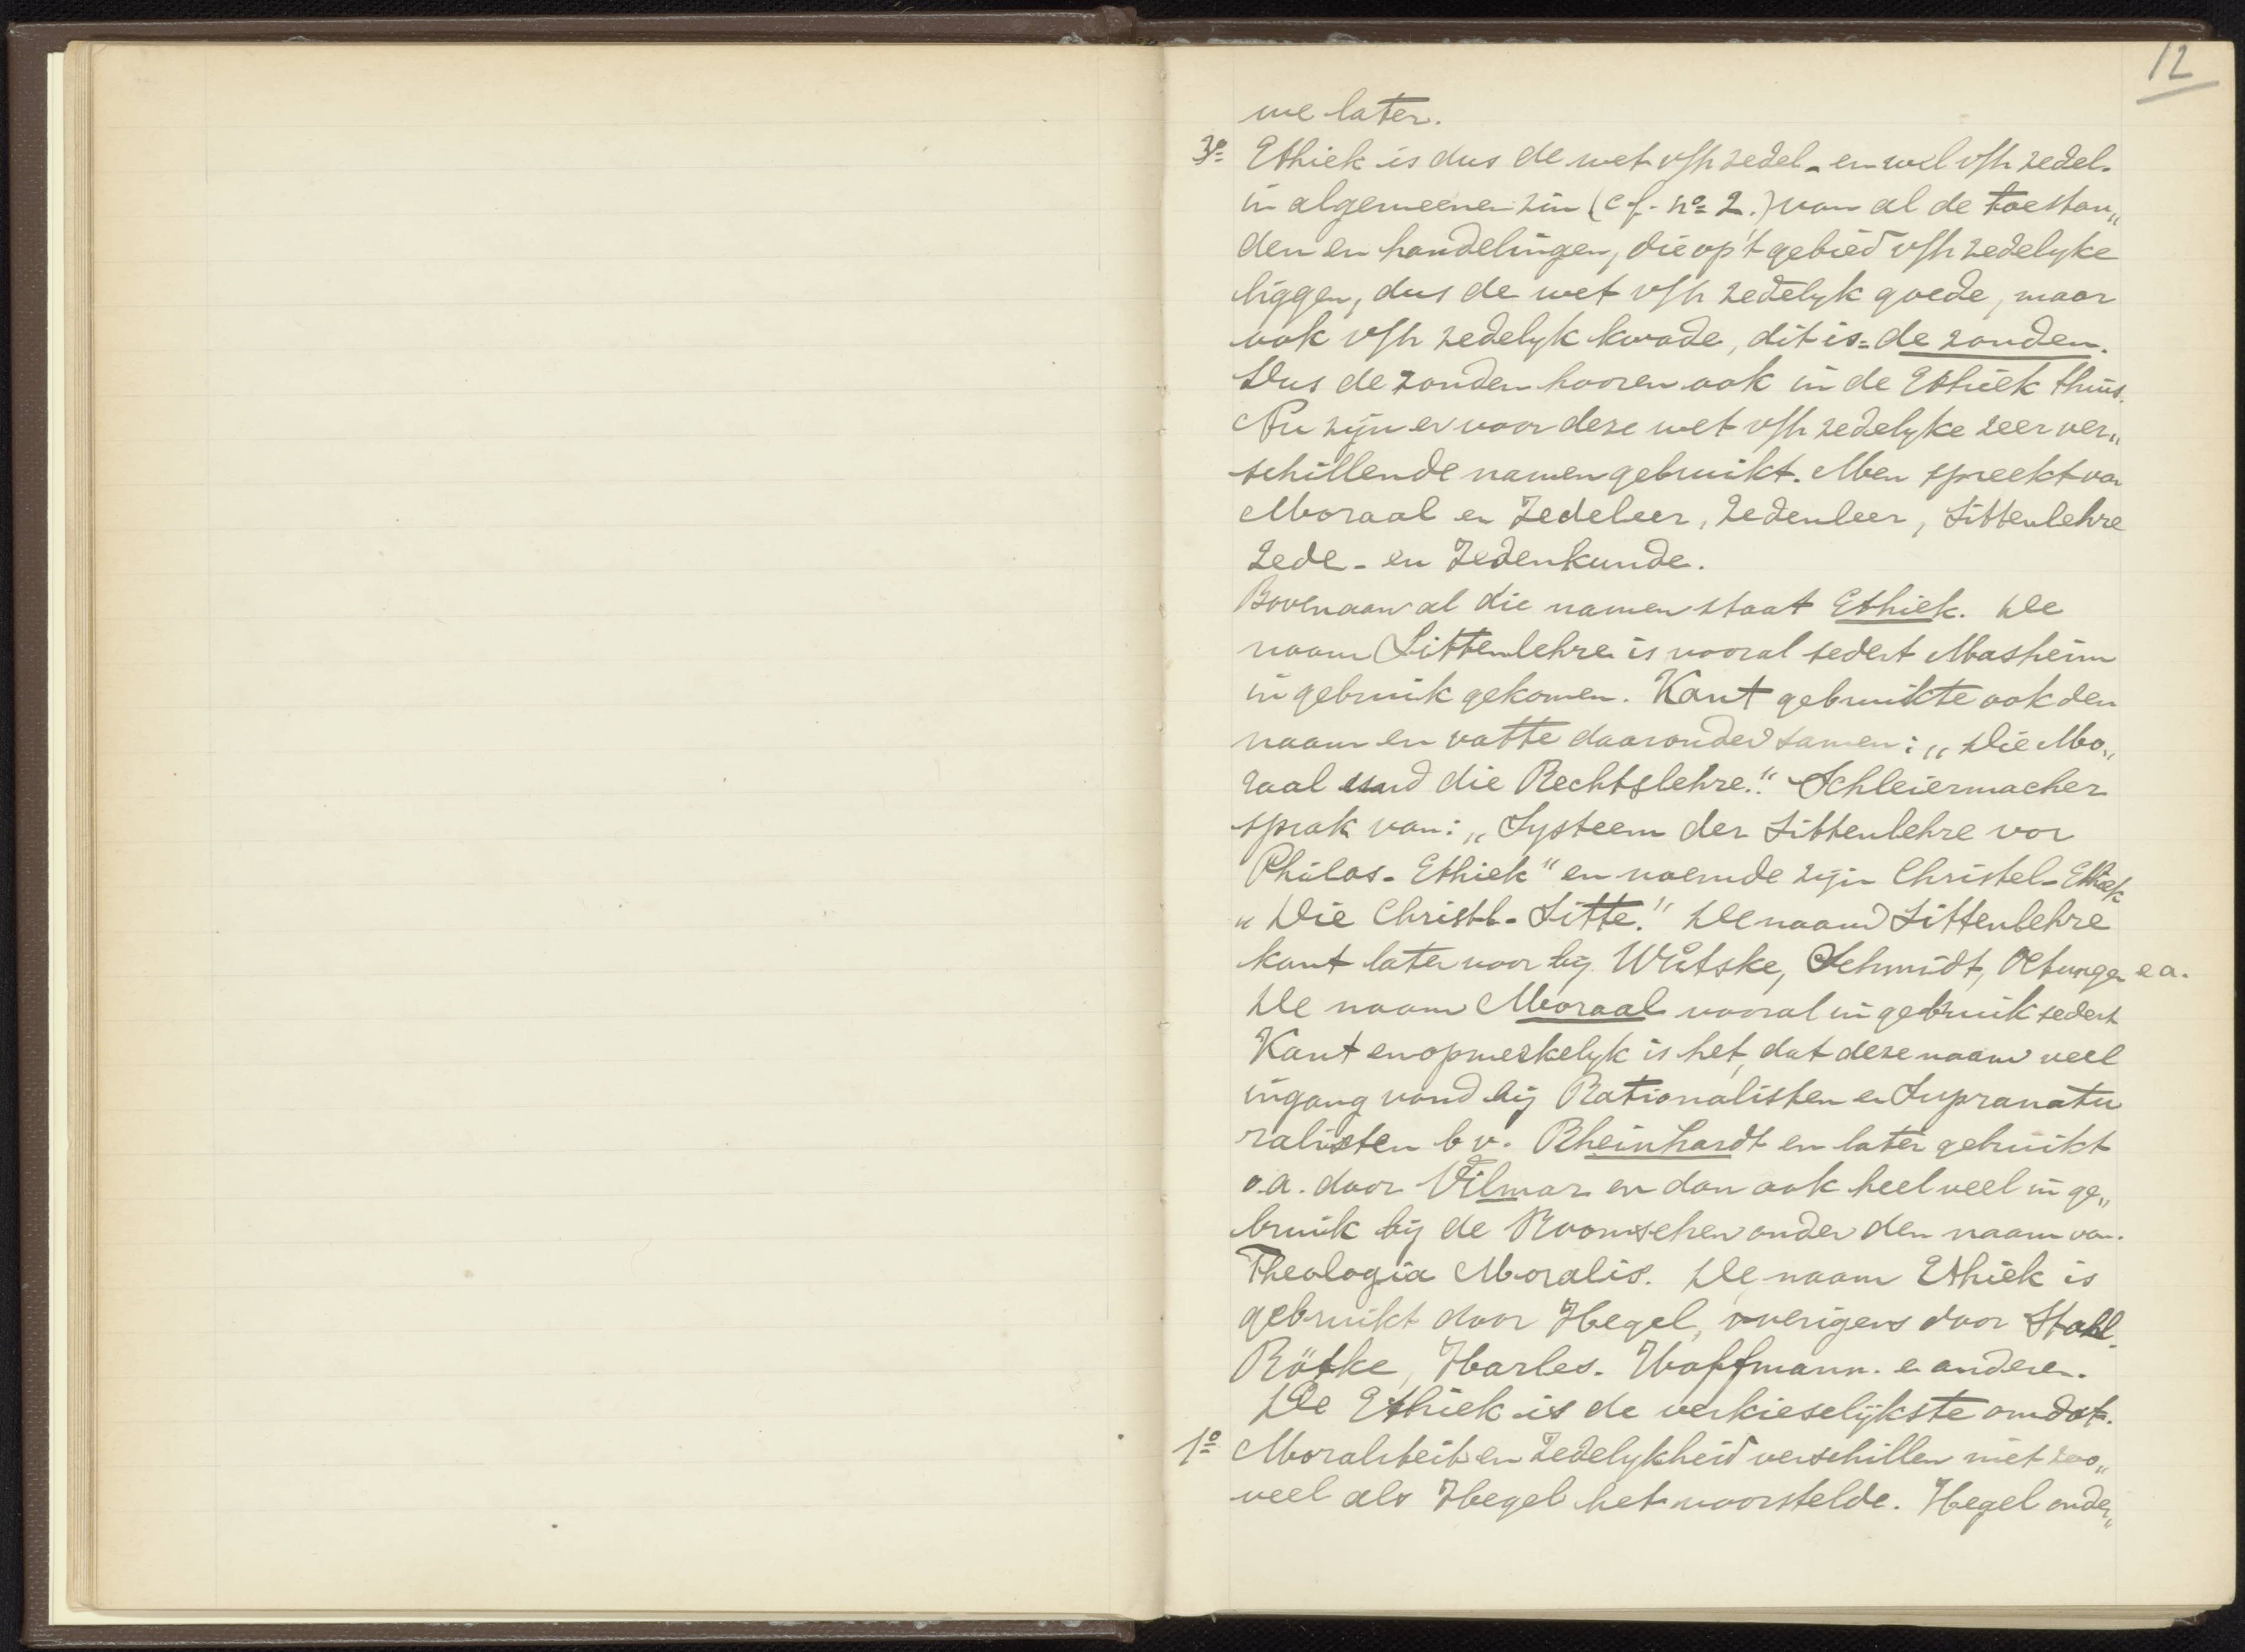 12
we later.
3º Ethiek is dus de wet v/h zedel- en wel v/h zedel.
in algemeenen zin (cf. nº 2.) van al de toestan„
den en handelingen, die op 't gebied v/h zedelyke
liggen, dus de wet v/h zedelyk goede, maar
ook v/h zedelyk kwade, dit is = de zonden.
Dus de zonden hooren ook in de Ethiek thuis.
Nu zijn er voor deze wet v/h zedelyke zeer ver„
schillende namen gebruikt. Men spreekt van
Moraal en Zedeleer, Zedenleer, Sittenlehre
Zede- en Zedenkunde.
Bovenaan al die namen staat Ethiek. De
naam Sittenlehre is vooral sedert Mosheim
in gebruik gekomen. Kant gebruikte ook den
naam en vatte daaronder samen: „Die Mo„
raal und die Rechtslehre." Schleiermacher
sprak van: „Systeem der Sittenlehre vor
Philos- Ethiek" en noemde zijn Christel- Ethiek
„Die Christl- Sitte." De naam Sittenlehre
komt later voor bij Wütske, Schmidt, Oetungen e a.
De naam Moraal vooral in gebruik sedert
Kant en opmerkelyk is het, dat deze naam veel
ingang vond bij Rationalisten en Supranatu
ralisten b v. Rheinhardt en later gebruikt
o.a. door Vilmar en dan ook heel veel in ge„
bruik bij de Roomschen onder den naam van.
Theologia Moralis. De naam Ethiek is
gebruikt door Hegel, overigens door Stahl.
Rötke, Harles. Hoffmann. en anderen.
De Ethiek is de verkieselijkste omdat.
1º Moraliteit en Zedelykheid verschillen niet zoo„
veel als Hegel het voorstelde. Hegel onder„